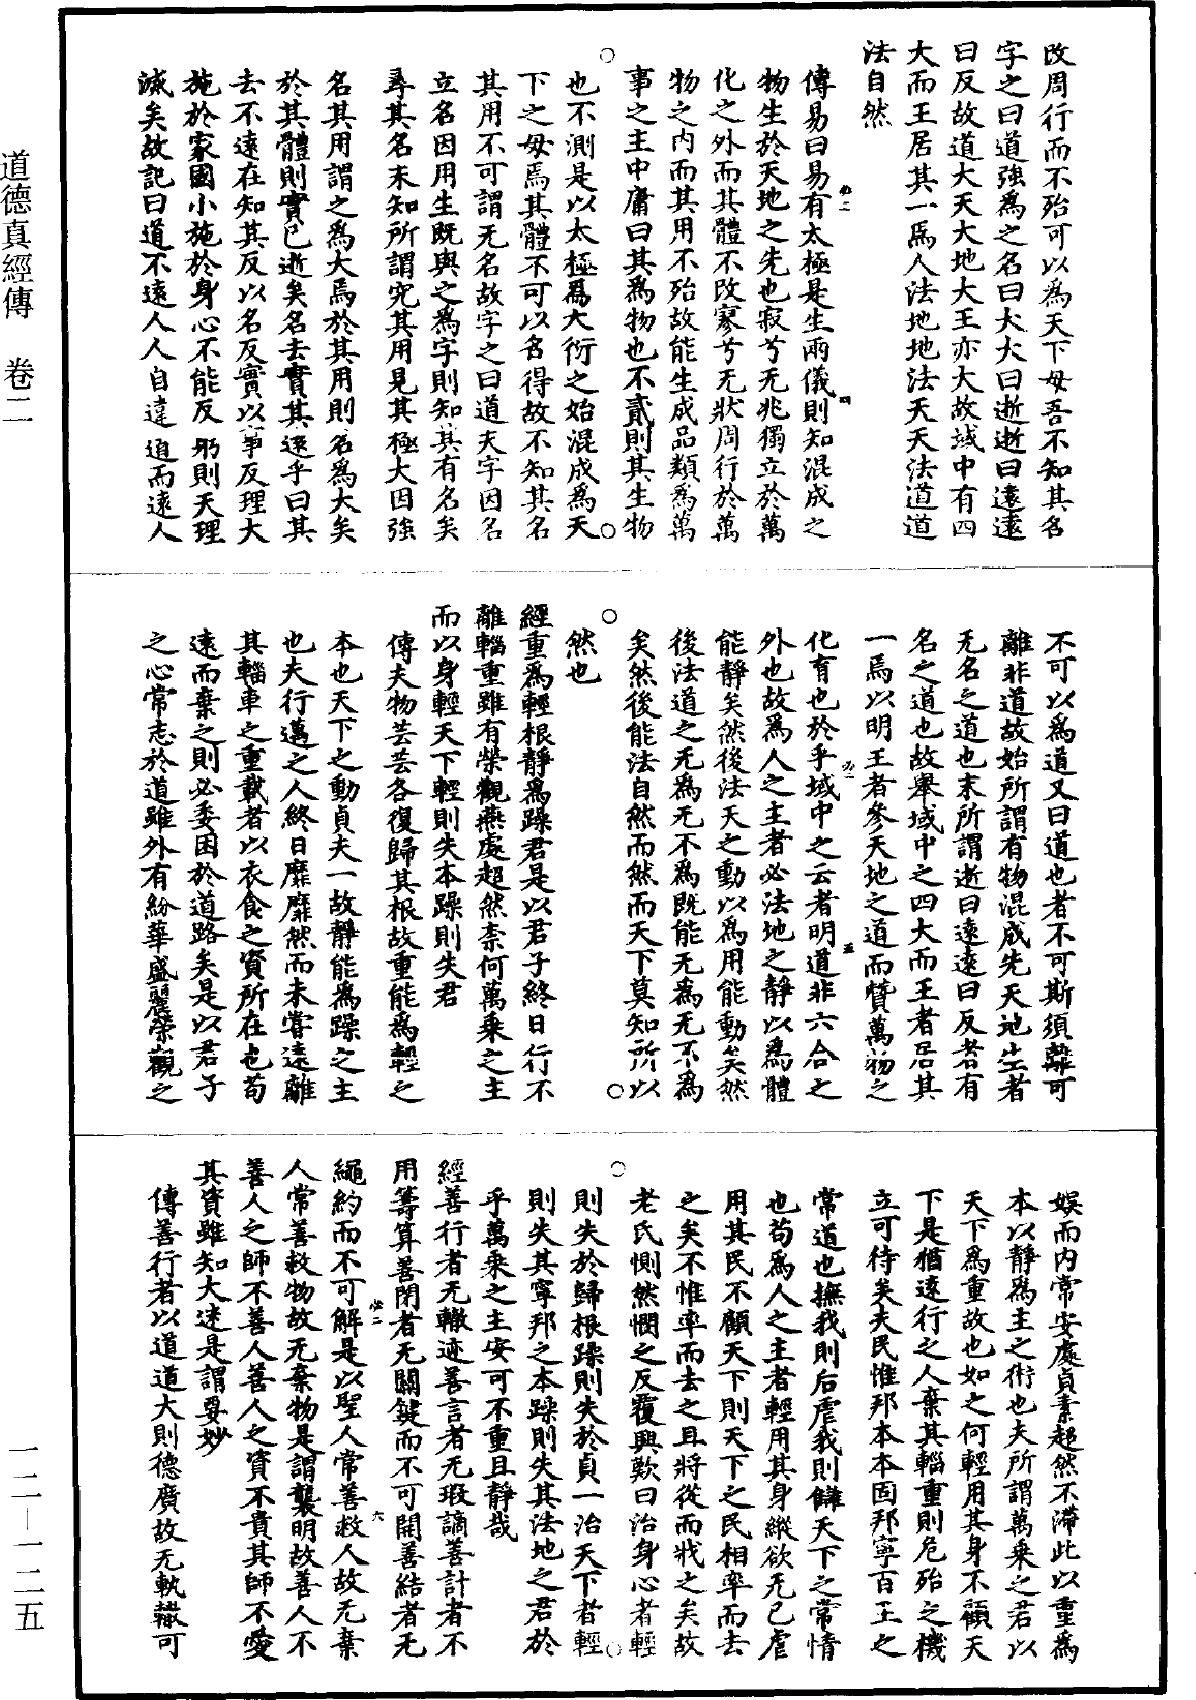 改周行而不殆可以為天下母吾不知其名
字之曰道強為之名曰大大曰逝逝曰遠遠
曰反故道大天大地大王亦大故域中有四
大而王居其一焉人法地地法天天法道道
法自然
傳易曰易有太極是生兩儀則知混成之
物生於天地之先也寂兮无兆獨立於萬
化之外而其體不改寥兮无狀周行於萬
物之內而其用不殆故能生成品類為萬
事之主中庸曰其為物也不貳則其生物
也不測是以太極為大衍之始混成為天
下之母焉其體不可以名得故不知其名
其用不可謂无名故字之曰道夫字因名
立名因用生既與之為字則知其有名矣
尋其名未知所謂究其用見其極大因強
名其用謂之為大焉於其用則名為大矣
於其體則實已逝矣名去實其遠乎曰其
去不遠在知其反以名反實以筆反理大
施於家國小施於身心不能反躬則天理
滅矣故記曰道不遠人人自違道而遠人
不可以為道又曰道也者不可斯須離可
離非道故始所謂有物混成先天地生者
无名之道也末所謂逝曰遠遠曰反者有
名之道也故舉域中之四大而王者居其
一焉以明王者參天地之道而贊萬物之
化育也於乎域中之云者明道非六合之
外也故為人之主者必法地之靜以為體
能靜矣然後法天之動以為用能動矣然
後法道之无為无不為既能无為无不為
矣然後能法自然而然而天下莫知所以
然也
經重為輕根靜為躁君是以君子終日行不
離輜重雖有榮觀燕處超然柰何萬乘之主
而以身輕天下輕則失本躁則失君
傳夫物芸芸各復歸其根故重能為輕之
本也天下之動貞夫一故靜能為躁之主
也夫行邁之人終日靡靡然而未嘗遠離
其輜車之重載者以衣食之資所在也苟
遠而棄之則必委困於道路矣是以君子
之心常志於道雖外有紛華盛麗榮觀之
娛而內常安處貞素超然不滯此以重為
本以靜為主之術也夫所謂萬乘之君以
天下為重故也如之何輕用其身不顧天
下是猶遠行之人棄其輜重則危殆之機
立可待矣夫民惟邦本本固邦寧百王之
常道也撫我則后虐我則讎天下之常情
也苟為人之主者輕用其身縱欲无已虐
用其民不顧天下則天下之民相率而去
之矣不惟率而去之且將從而戕之矣故
老氏惻然憫之反覆興歎曰治身心者輕
則失於歸根躁則失於貞一治天下者輕
則失其寧邦之本躁則失其法地之君於
乎萬乘之主安可不重且靜哉
經善行者无轍迹善言者无瑕讁善計者不
用籌算善閉者无關鍵而不可開善結者无
繩約而不可解是以聖人常善救人故无棄
人常善救物故无棄物是謂襲明故善人不
善人之師不善人善人之資不貴其師不愛
其資雖知大迷是謂要妙
傳善行者以道道大則德廣故无軌轍可
道德真經傳 卷二
一二—一二五